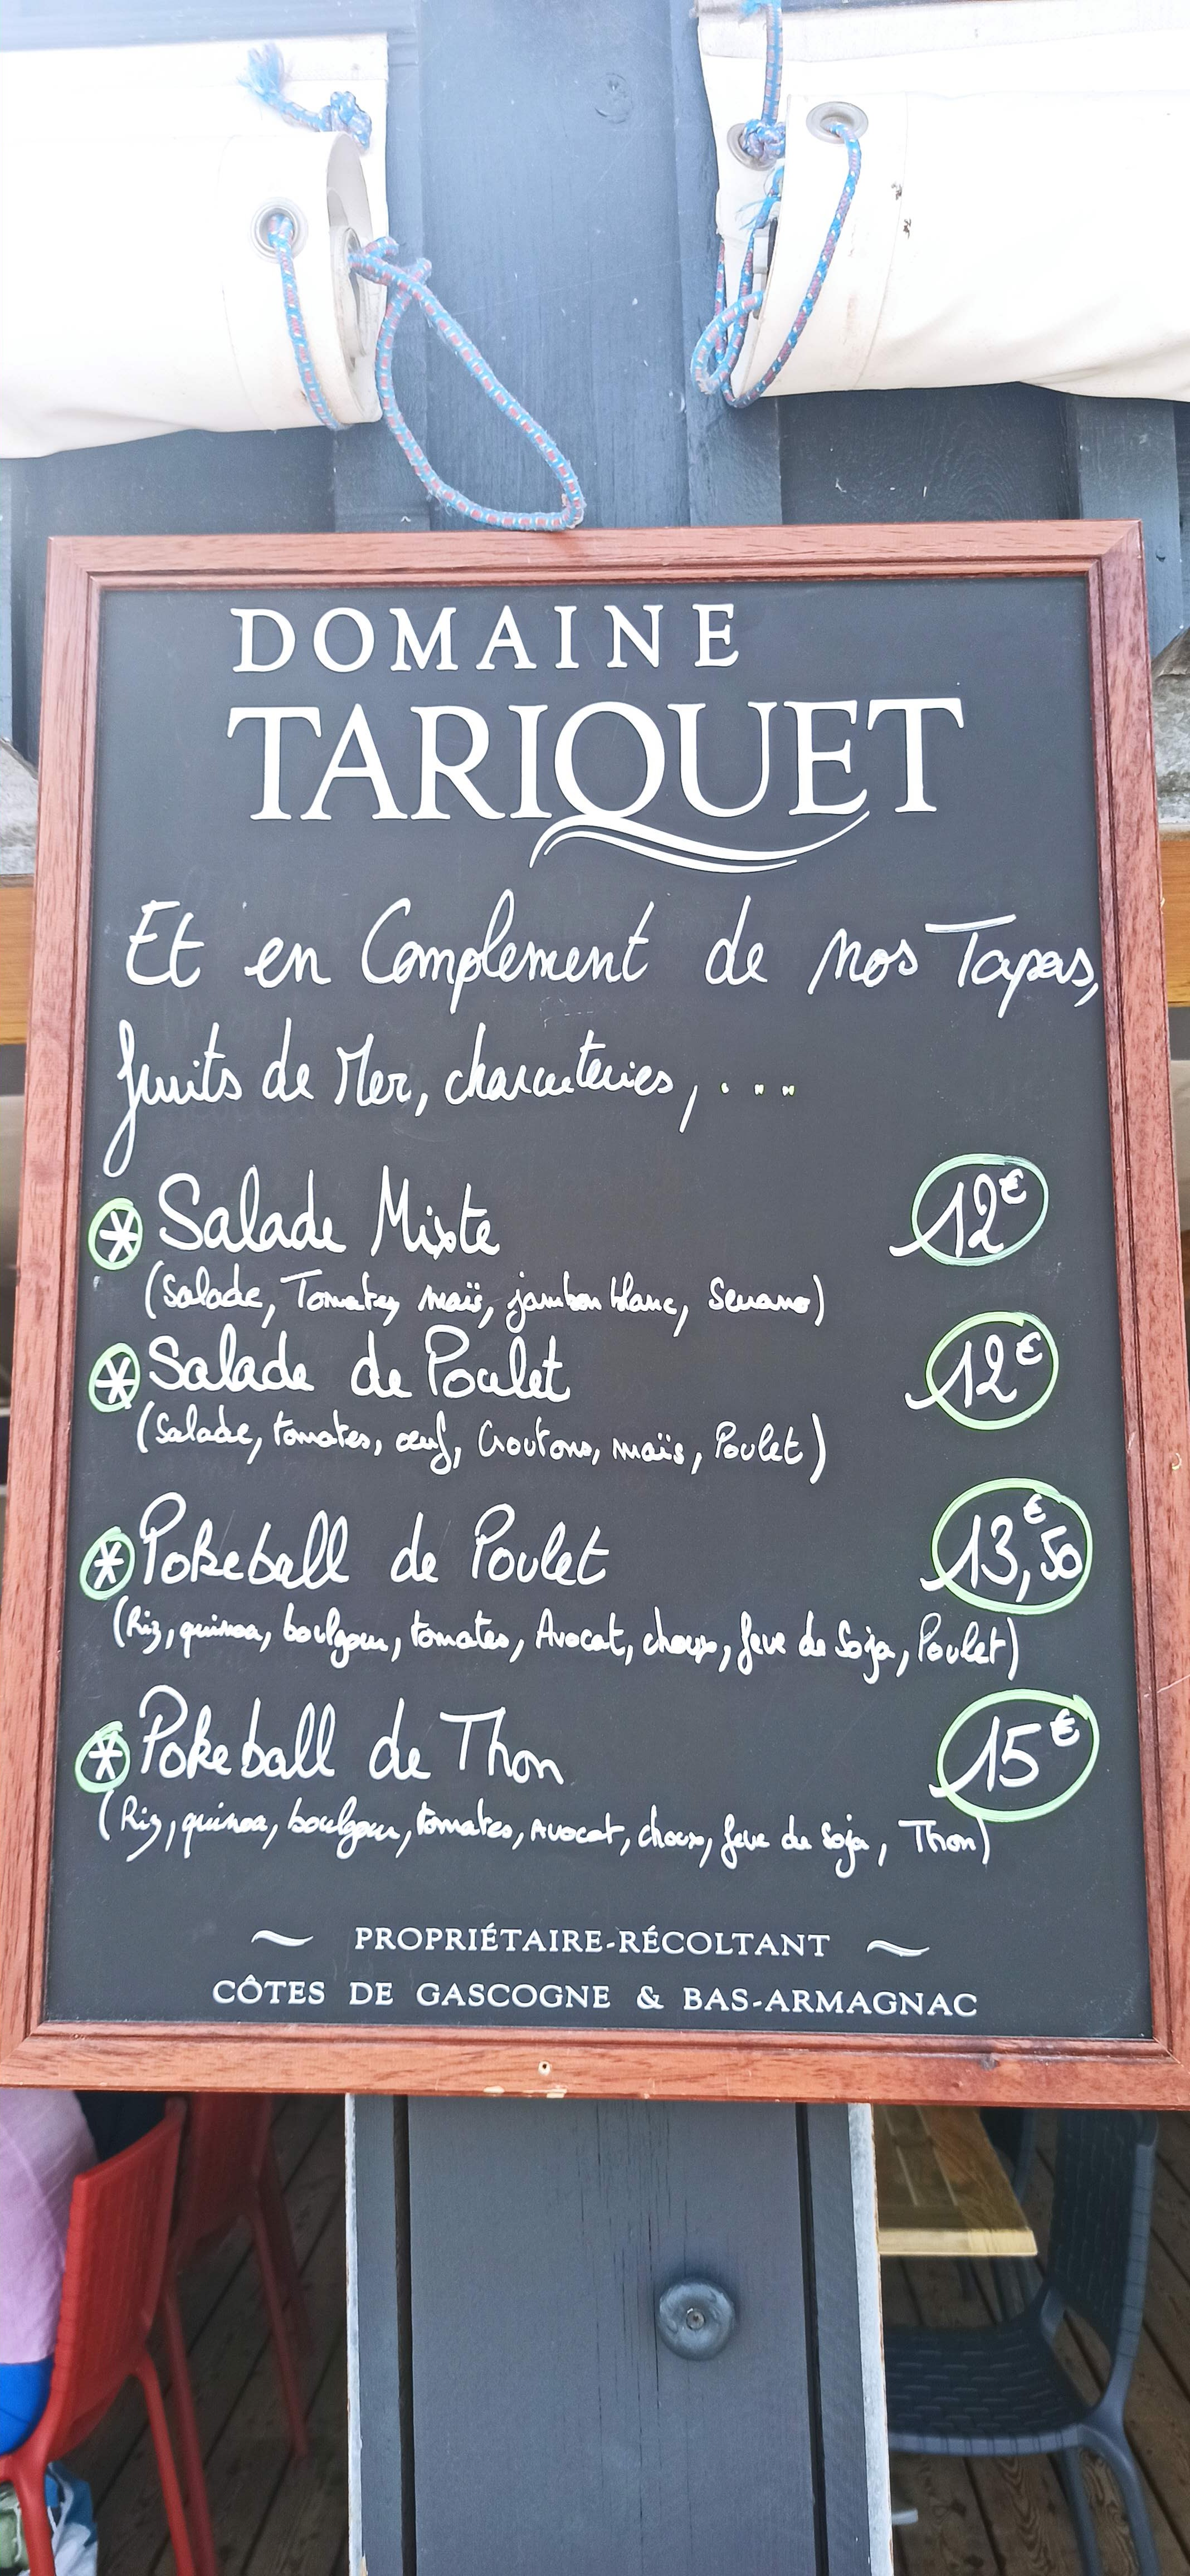 DOMAINE
TARIQUET
Et en Complement de nos Tapas,
fruits de Mer, charcuteries, ...
* Salade Mixte 12€
(Salade, Tomates, maïs, jambon blanc, Serrano)
* Salade de Poulet 12€
(Salade, tomates, œuf, Croutons, maïs, Poulet)
* Pokeball de Poulet 13,€50
(Riz, quinoa, boulgour, tomates, Avocat, choux, feve de Soja, Poulet)
* Pokeball de Thon 15€
(Riz, quinoa, boulgour, tomates, Avocat, choux, feve de Soja, Thon)
~ PROPRIÉTAIRE-RÉCOLTANT ~
CÔTES DE GASCOGNE & BAS-ARMAGNAC